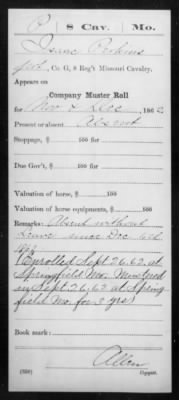 P 8 Cav. Mo.
Isaac Perkins
Pvt., Co. G, 8 Reg't Missouri Cavalry,
Appears on
Company Muster Roll
for Nov & Dec, 1862
Present or absent Absent
Stoppage, $ 100 for
Due Gov't, $ 100 for
Valuation of horse, $ 100
Valuation of horse equipments, $ 100
Remarks: Absent without
Leave since Dec 6th
1862
Enrolled Sept 26. 62. at
Springfield Mo. Mustered
in Sept 26. 62 at Spring
field Mo. for 3 yrs
Book mark:
Allen
(358) Copyist.